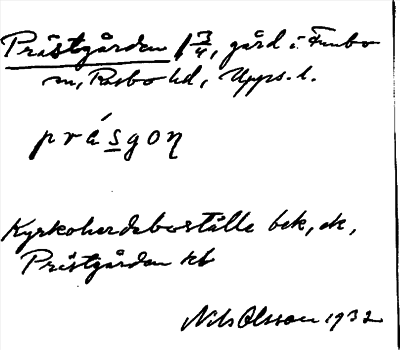 Prästgården 1 3/4, gård i Funbo
sn, Rasbo hd, Upps. l.
prásgoŋ
Kyrkoherdeboställe bek, ek,
Prästgården kb
Nils Olsson 1932